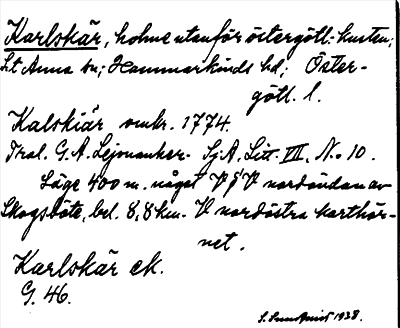 Karlskär, holme utanför östergötl. kusten;
S:t Anna sn; Hammarkinds hd; Öster-
götl. l.
Kalskiär omkr. 1774.
Trol. G.A. Leijonancker. Sj.A, Litt. VII, No 10.
Läge 400 m. något V f V nordändan av
Skogsböte, bel. 8,8 km. V nordöstra karthör-
net.
Karlskär ek.
G. 46.
S. Sundquist 1938.